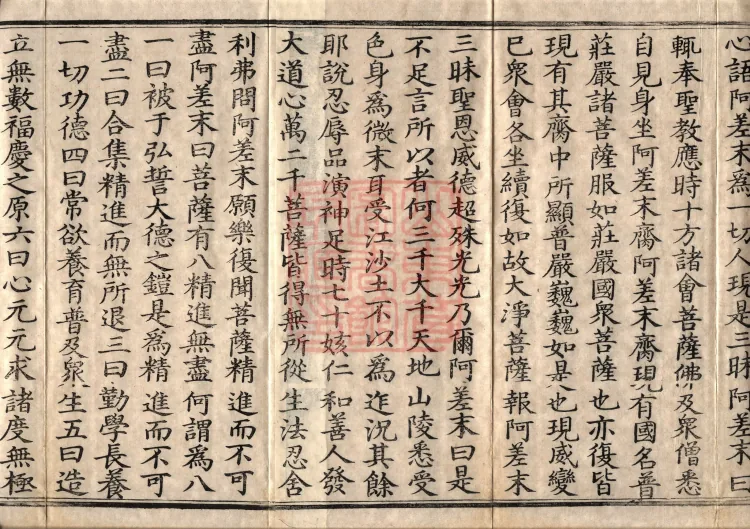 心語阿差末爲一切人現是三昧阿差末曰
輒奉聖教應時十方諸會菩薩佛及衆僧悉
自見身坐阿差末齎阿差末齎現有國名普
莊嚴諸菩薩服如莊嚴國衆菩薩也亦復皆
現有其齎中所顯普嚴巍巍如是也現威變
已衆會各坐續復如故大淨菩薩報阿差末
三昧聖恩威德超殊光光乃爾阿差末曰是
不足言所以者何三千大千天地山陵悉受
色身爲微末耳受江沙土不以爲迮況其餘
耶說忍辱品演神足時七十姟仁和善人發
大道心萬二千菩薩皆得無所從生法忍舍
利弗問阿差末願樂復聞菩薩精進而不可
盡阿差末曰菩薩有八精進無盡何謂爲八
一曰被于弘誓大德之鎧是爲精進而不可
盡二曰合集精進而無所退三曰勤學長養
一切功德四曰常欲養育普及衆生五曰造
立無數福慶之原六曰心元元求諸度無極